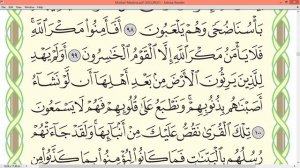 بَأْسُنَا ضُحًى وَهُمْ يَلْعَبُونَ ٩٨ أَفَأَمِنُوا مَكْرَ اللَّهِ
فَلَا يَأْمَنُ مَكْرَ اللَّهِ إِلَّا الْقَوْمُ الْخَاسِرُونَ ٩٩ أَوَلَمْ يَهْدِ
لِلَّذِينَ يَرِثُونَ الْأَرْضَ مِنْ بَعْدِ أَهْلِهَا أَنْ لَوْ نَشَاءُ
أَصَبْنَاهُمْ بِذُنُوبِهِمْ وَنَطْبَعُ عَلَى قُلُوبِهِمْ فَهُمْ لَا يَسْمَعُونَ
١٠٠ تِلْكَ الْقُرَى نَقُصُّ عَلَيْكَ مِنْ أَنْبَائِهَا وَلَقَدْ جَاءَتْهُمْ
رُسُلُهُمْ بِالْبَيِّنَاتِ فَمَا كَانُوا لِيُؤْمِنُوا بِمَا كَذَّبُوا مِنْ